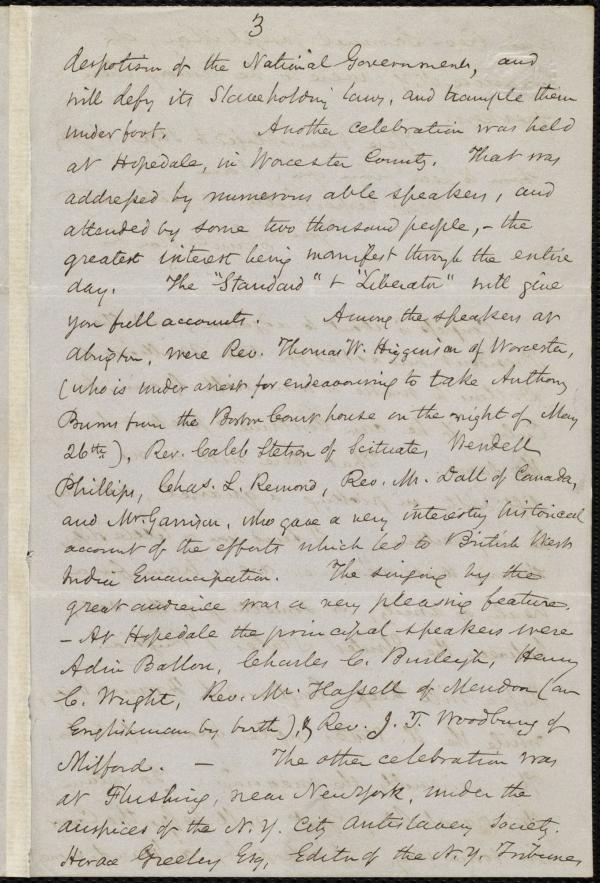 3
despotism of the National Government, and
will defy its Slaveholding laws, and trample them
under foot. Another celebration was held
at Hopedale, in Worcester County. That was
addressed by numerous able speakers, and
attended by some two thousand people, - the
greatest interest being manifest through the entire
day. The "Standard" & "Liberator" will give
you full accounts. Among the speakers at
Abington, were Rev. Thomas W. Higginson of Worcester,
(who is under arrest for endeavouring to take Anthony
Burns from the Boston Court house on the night of May
26th), Rev. Caleb Stetson of Scituate, Wendell
Phillips, Chas. L. Remond, Rev. Mr. Dall of Canada,
and Mr. Garrison, who gave a very interesting historical
account of the efforts which led to British West
India Emancipation. The singing by the
great audience was a very pleasing feature.
- At Hopedale the principal speakers were
Adin Ballou, Charles C. Burleigh, Henry
C. Wright, Rev. Mr. Hassell of Mendon (an
Englishman by birth), & Rev. J. T. Woodbury of
Milford. - The other celebration was
at Flushing, near New York, under the
auspices of the N. Y. City Antislavery Society.
Horace Greeley Esq, Editor of the N. Y. Tribune,